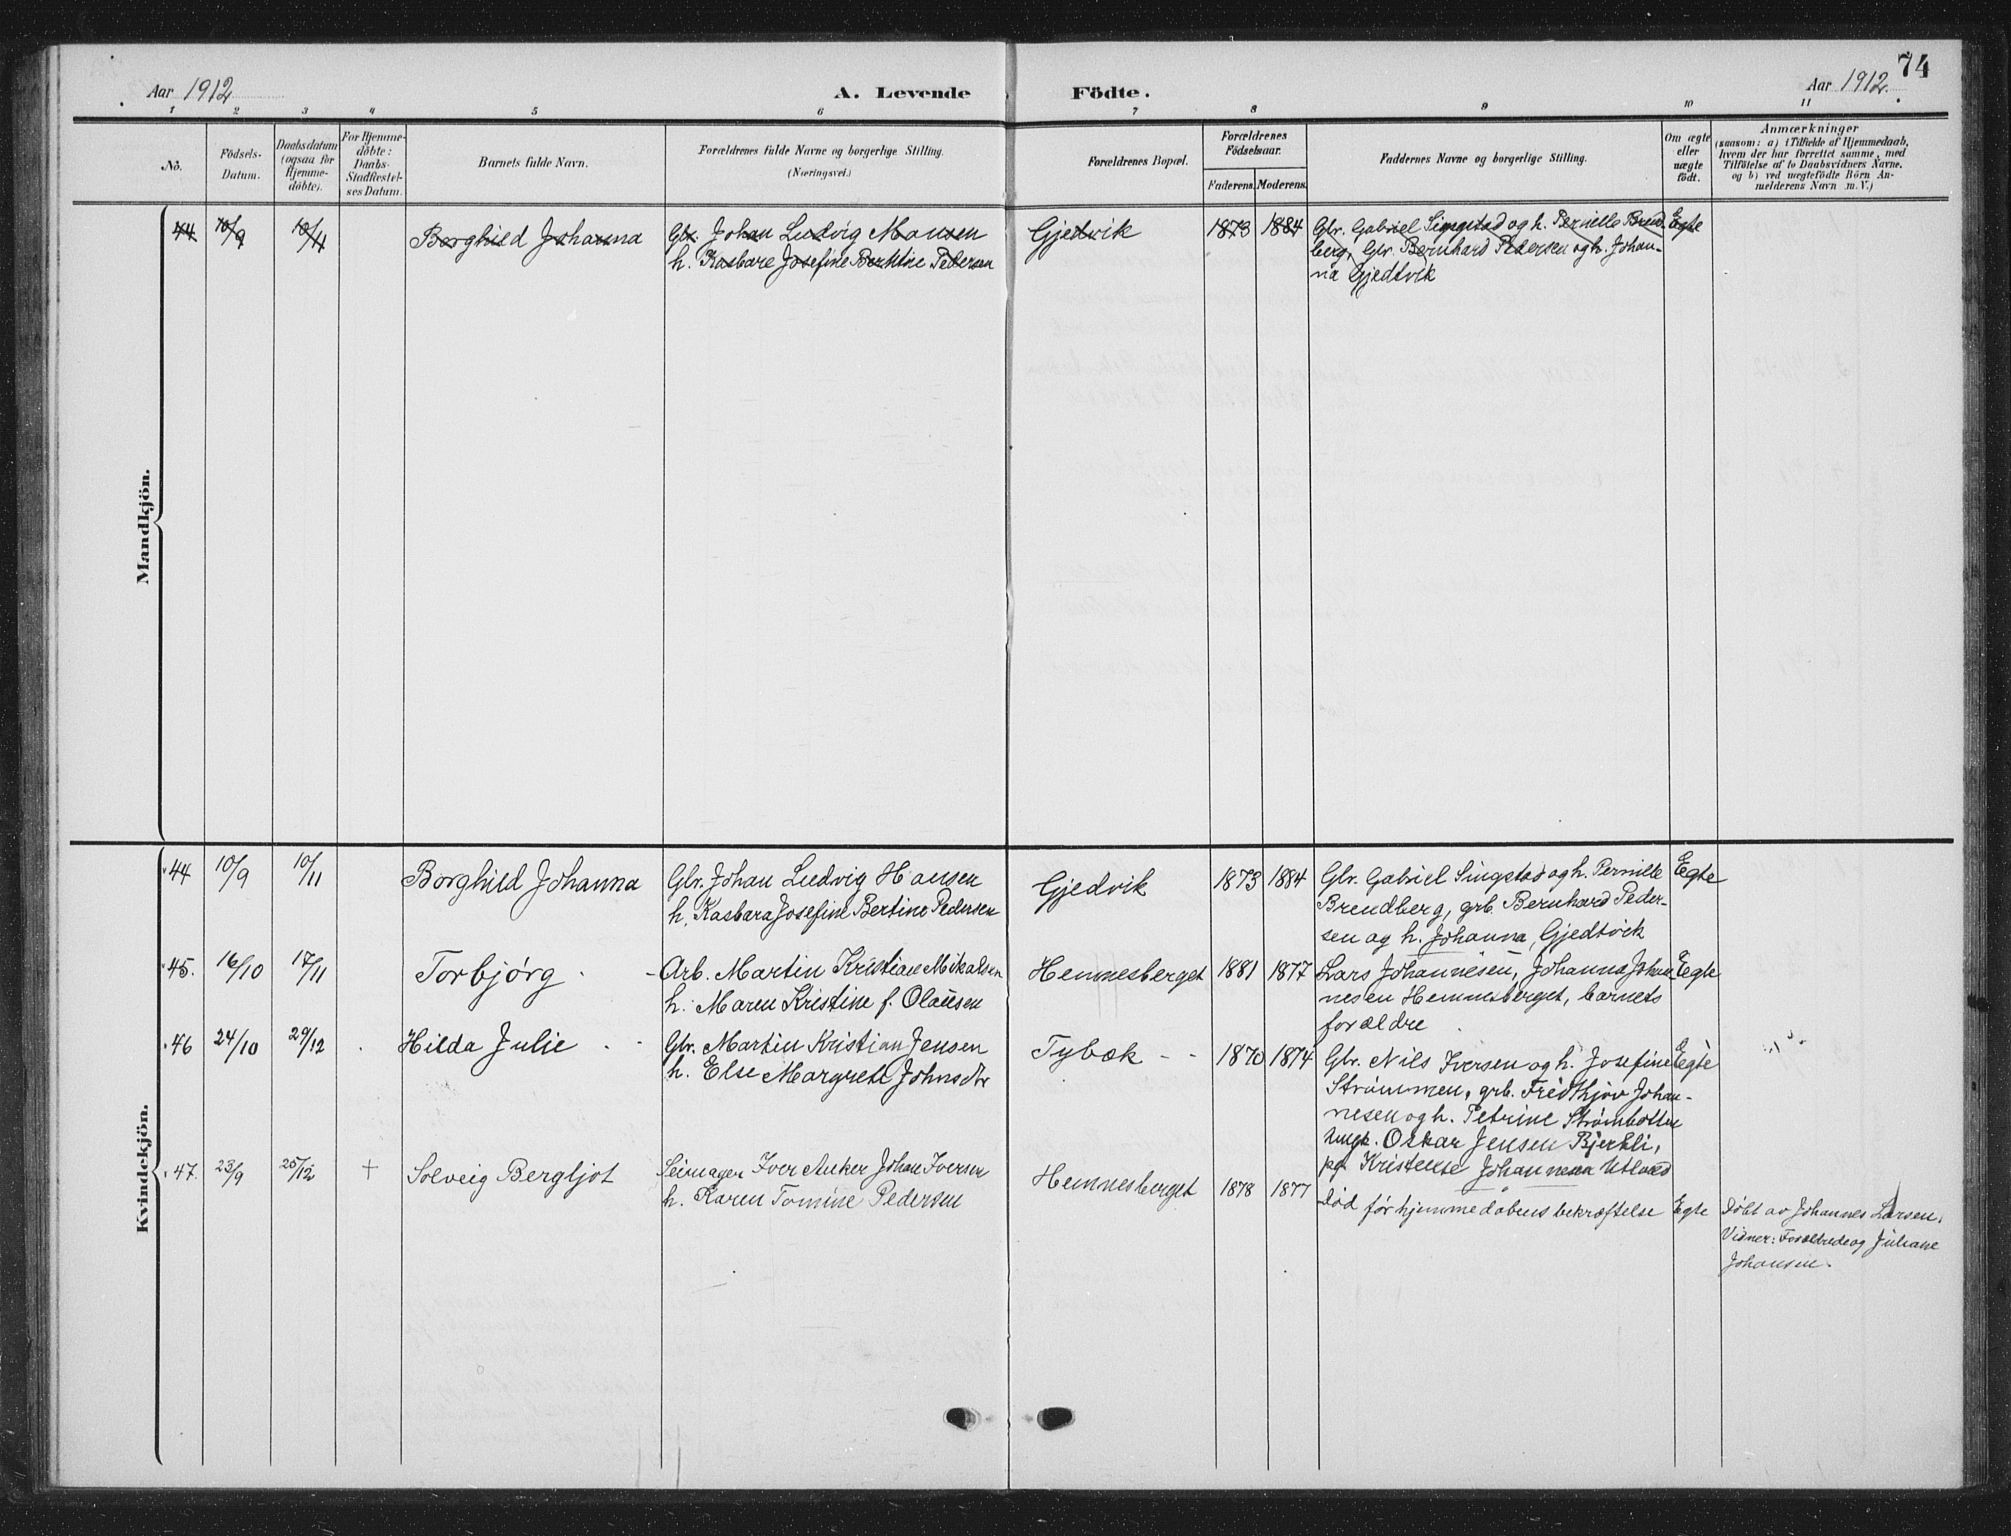 74
Aar 1912
A. Levende Födte.
Aar 1912
1 2 3 4 5 6 7 8 9 10 11
No.
Födsels-
Datum.
Daabsdatum
(ogsaa for
Hjemme-
döbte).
For Hjemme-
döbte:
Daabs-
Stadfæstel-
ses Datum.
Barnets fulde Navn.
Forældrenes fulde Navne og borgerlige Stilling.
(Næringsvei.)
Forældrenes Bopæl.
Forældrenes
Födselsaar.
Faderens. Moderens.
Faddernes Navne og borgerlige Stilling.
Om ægte
eller
uægte
födt.
Anmærkninger
(saasom: a) i Tilfælde af Hjemmedaab,
hvem der har forrettet samme, med
Tilföielse af to Daabsvidners Navne,
og b) ved uægtefödte Börn An-
melderens Navn m. V.)
Mandkjön.
44 10/9 10/11 Borghild Johanna
Gbr. Johan Ludvig Hansen
h. Kasbara Josefine Bertine Pedersen
Gjedvik 1873 1884
Gbr. Gabriel Singstad og h. Pernille Brend
berg, Gbr. Bernhard Pedersen og h. Johan-
na Gjedtvik
Egte
Kvindekjön.
44 10/9 10/11 Borghild Johanna
Gbr. Johan Ludvig Hansen
h. Kasbara Josefine Bertine Pedersen
Gjedvik 1873 1884
Gbr. Gabriel Singstad og h. Pernille
Brendberg, grb. Bernhard Peder-
sen og h. Johanna, Gjedtvik
Egte
45. 16/10 17/11 Torbjørg
Arb. Martin Kristian Mikalsen
h. Maren Kristine f. Olaisen
Hemnesberget 1881 1877
Lars Johannesen, Johanna Johan
nesen Hemnesberget, barnets
forældre
Egte
46 24/10 29/12 Hilda Julie
Gbr. Martin Kristian Jensen
h. Else Margrete Johnsdtr
Tybæk 1870 1874
Gbr. Nils Iversen og h. Josefine
Strømmen, grb. Fredthjov Johan-
nesen og h. Petrine Strømbotten
Ungk. Oskar Jensen Bjerkli,
pg. Kristense Johannesen
Egte
47. 23/9 25/12 + Solveig Bergljot
Iver Anker Johan Iversen
h. Karen Tomine Pedersen
Hemnesberget 1878 1877
Død før hjemmedåbens bekræftelse
Egte
Döbt av Johannes Larsen.
Vidner: Forældrede og Juliane
Johansen.